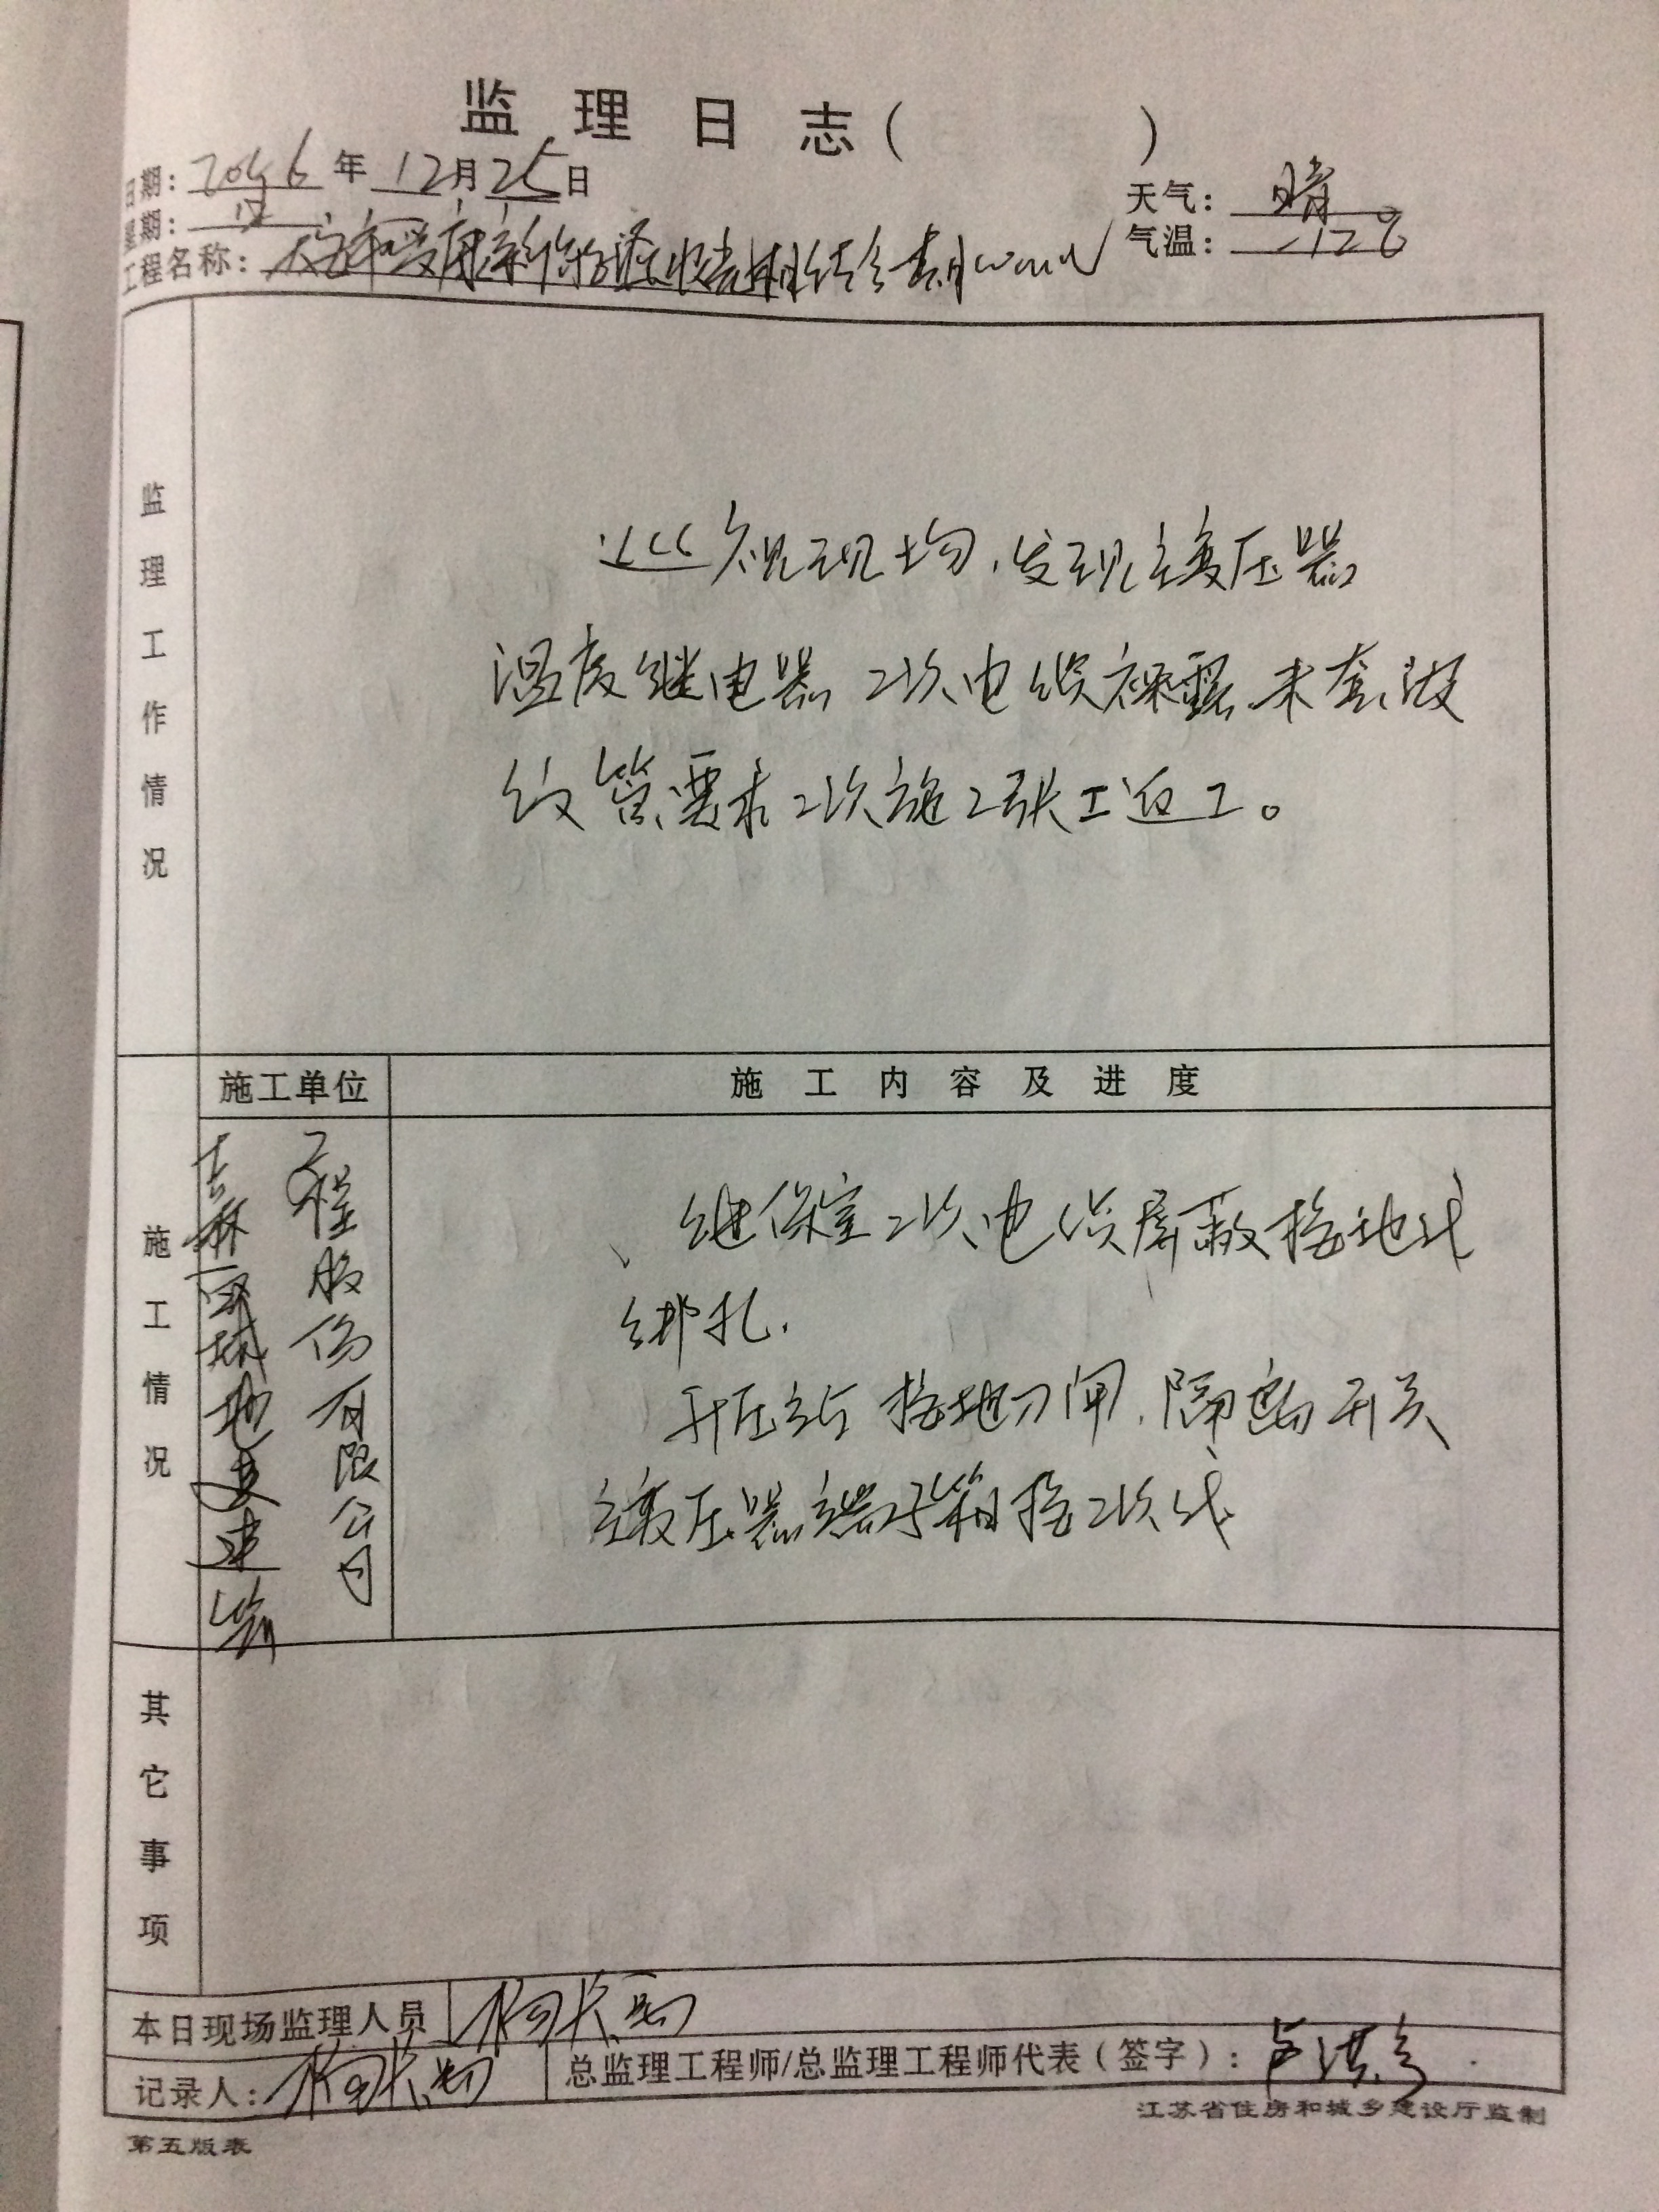 监理日志（ ）
日期：2016年12月25日
天气：晴
星期：
气温：-12℃
工程名称：
监理工作情况
巡视现场，发现主变压器
温度继电器二次电缆裸露，未套波
纹管，要求二次施工张工返工。
施工单位
施工内容及进度
施工情况
吉林
地
建
工程股份有限公司
、继保室二次电缆屏蔽接地线
绑扎.
升压站接地刀闸，隔离开关
主变压器端子箱接二次线
其它事项
本日现场监理人员
记录人：
总监理工程师/总监理工程师代表（签字）：
江苏省住房和城乡建设厅监制
第五版表